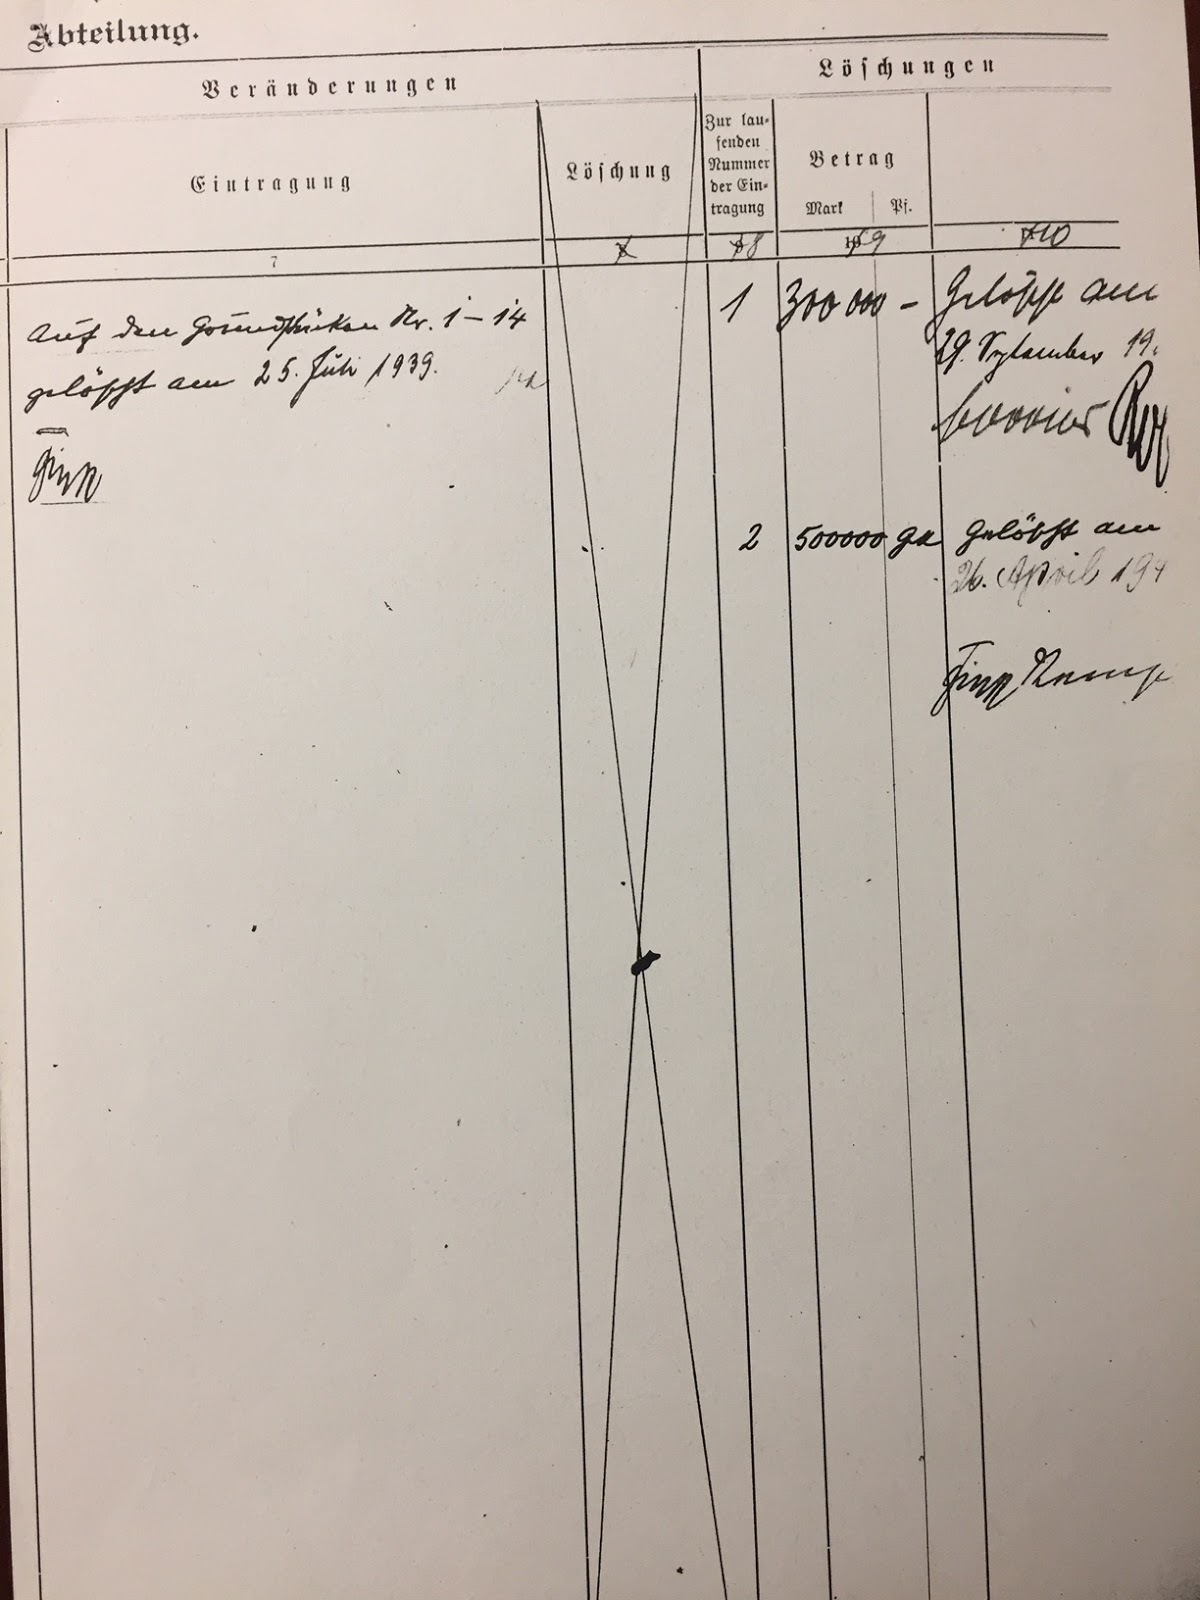 Abteilung.
Veränderungen
Löschungen
Eintragung
Löschung
Zur lau-
fenden
Nummer
der Ein-
tragung
Betrag
Mark Pf.
7
8
9
10
Auf den Grundstücken Nr. 1 - 14
gelöscht am 25. Juli 1939.
1 300 000 - Gelöscht am
29. September 19.
2 500000 Gelöscht am
26. April 194